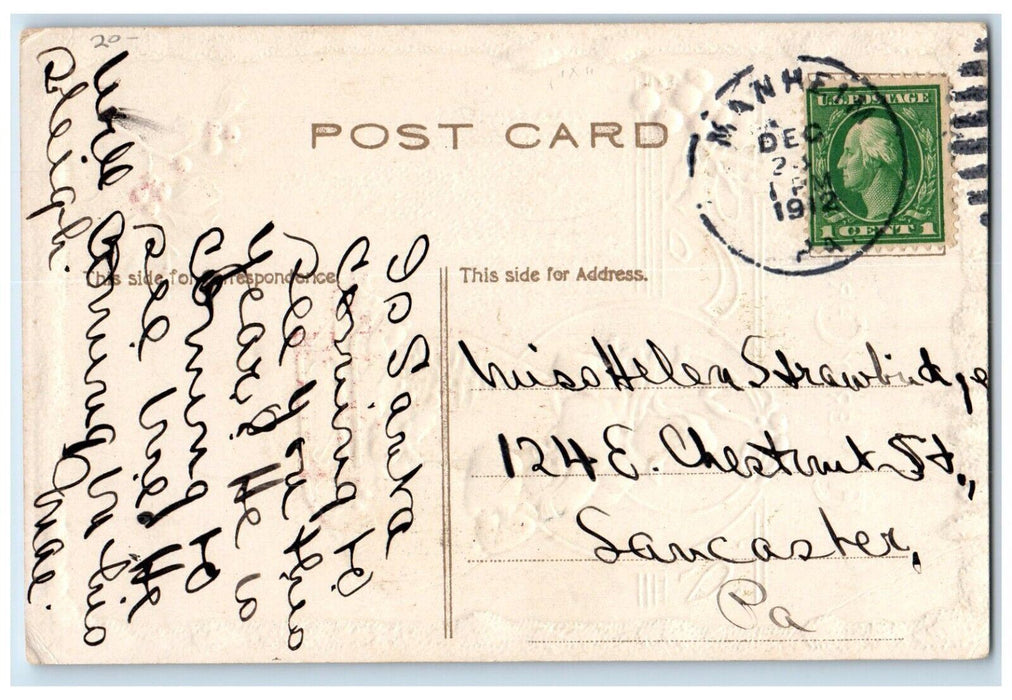 20-
POST CARD
MANHEIM
DEC
1912
PA
U.S. POSTAGE
1 CENT 1
This side for Correspondence.
This side for Address.
Is Santa
coming to
see you this
year? He is
coming to
see He
will coming in his
sleigh.
Mae.
Miss Helen Strawbridge
124 E. Chestnut St.,
Lancaster,
Pa